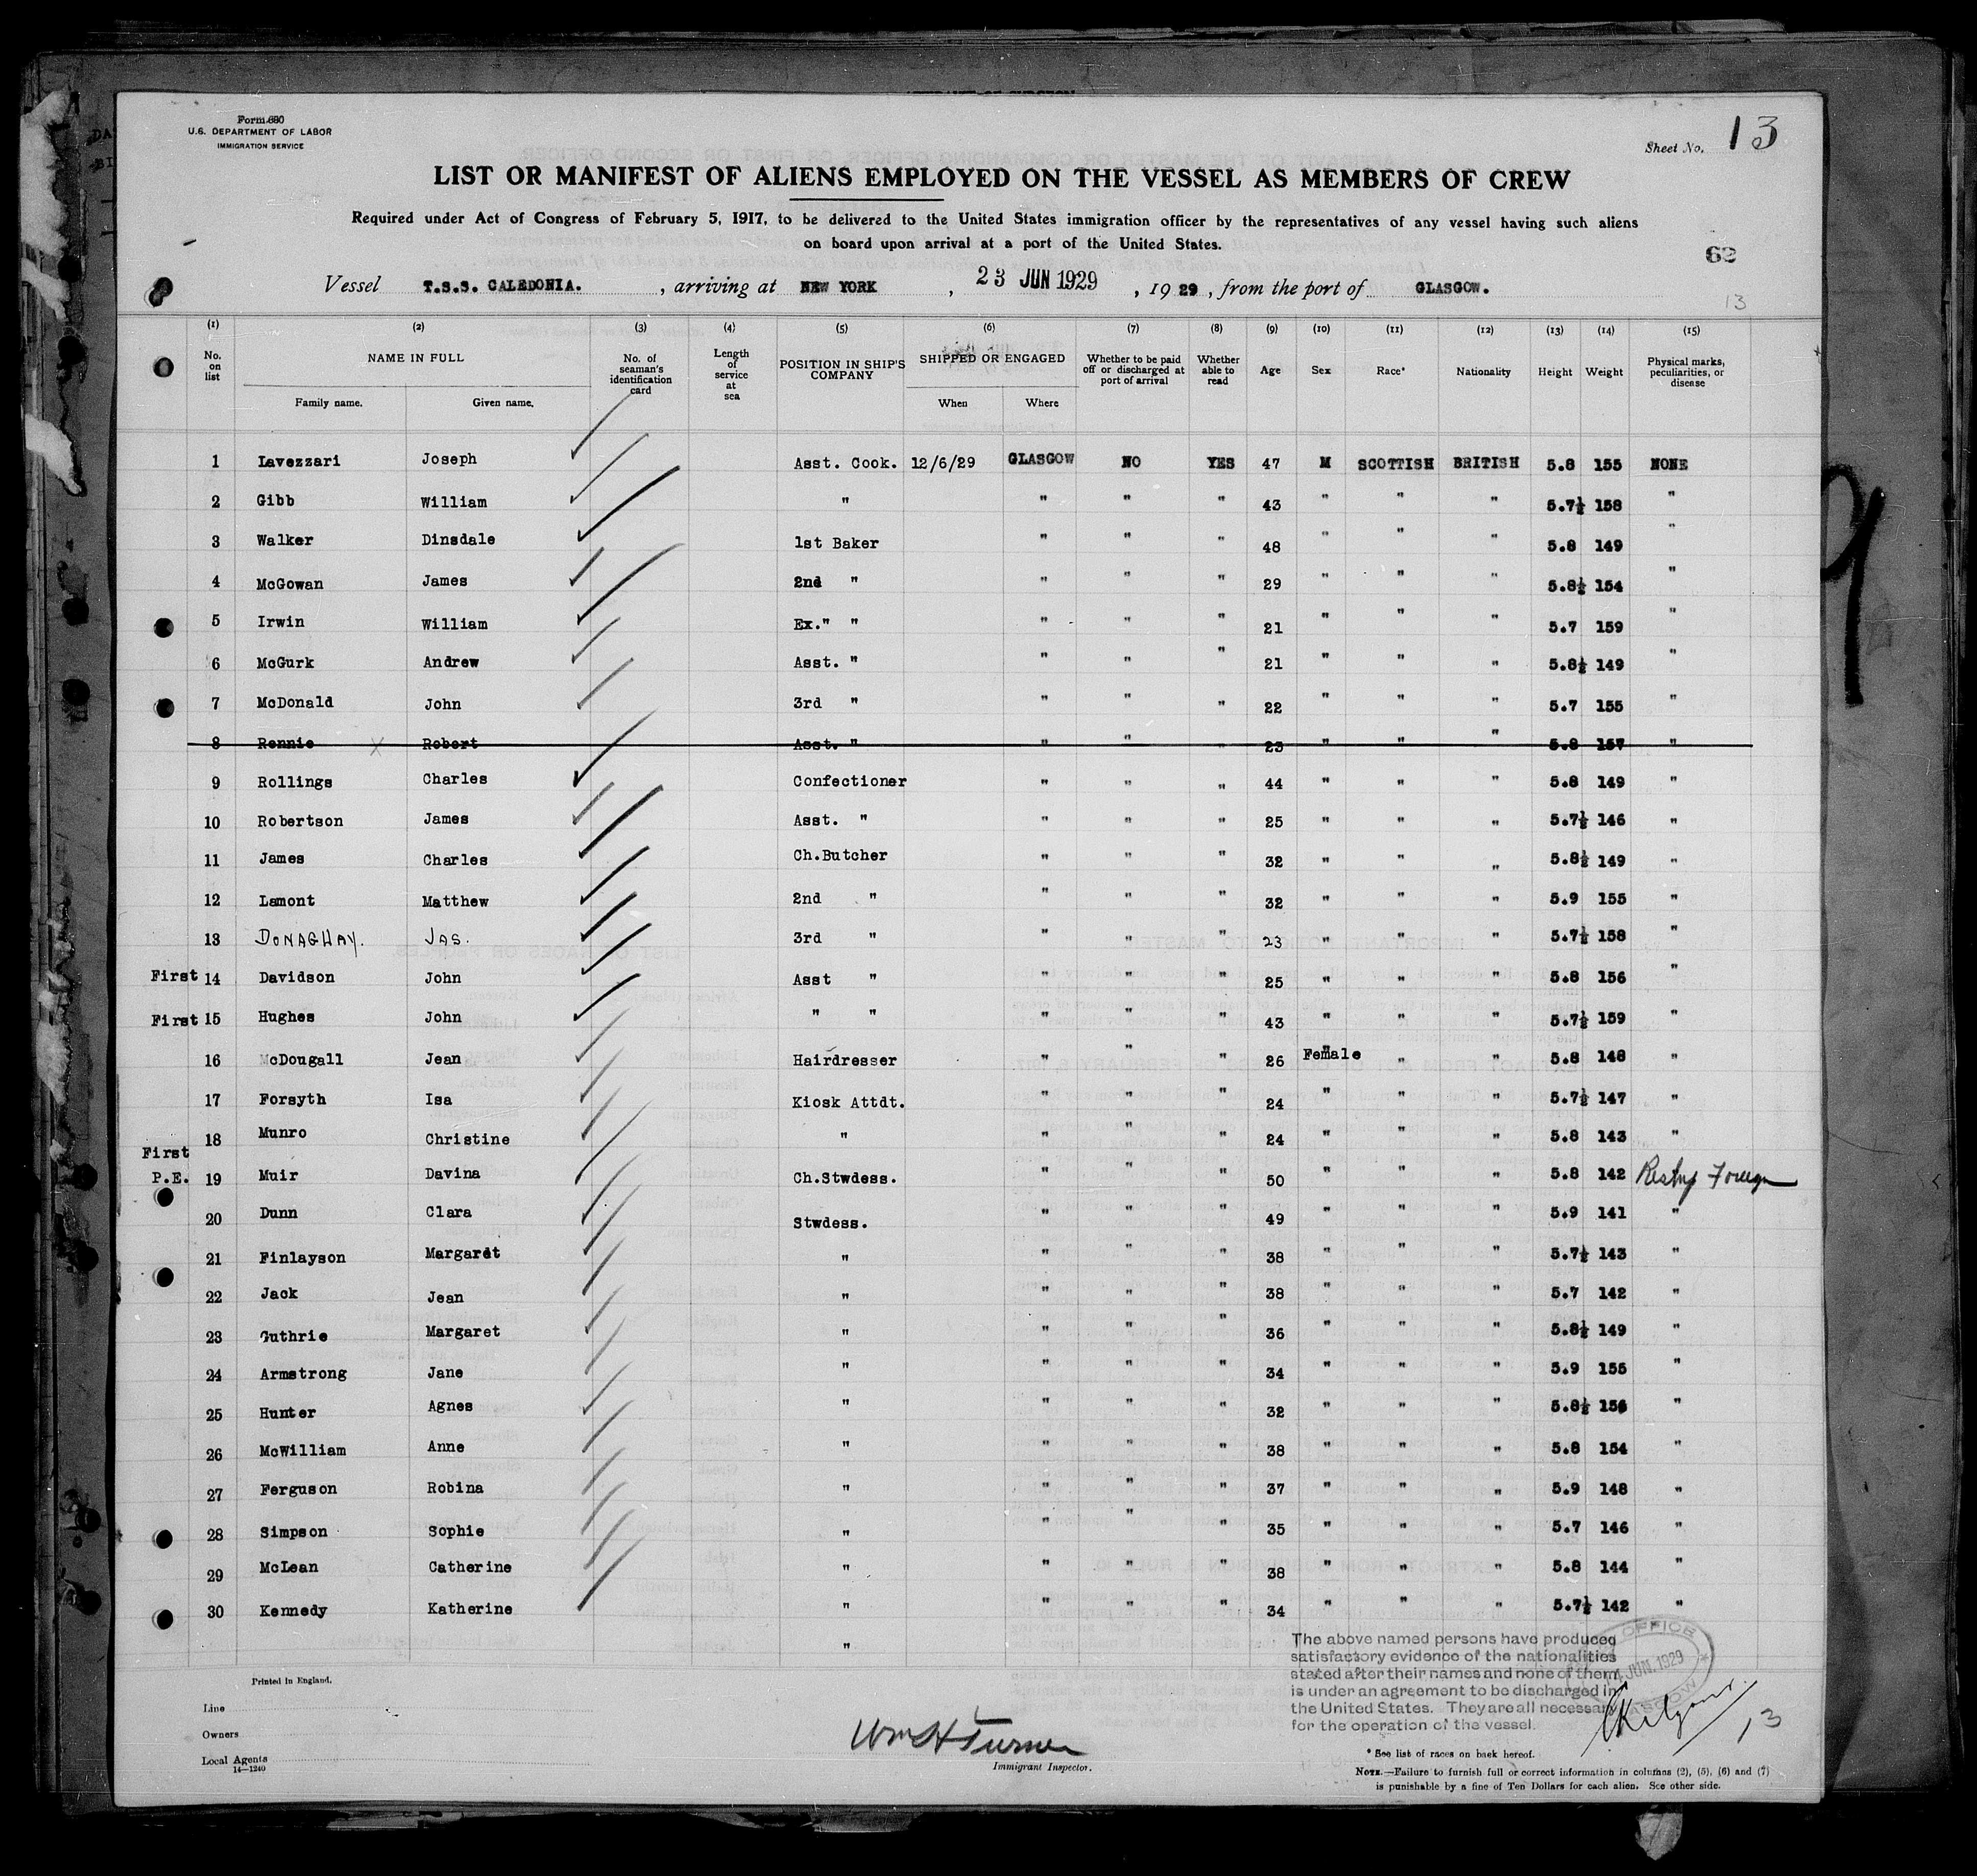 Form 680
U.S. DEPARTMENT OF LABOR
IMMIGRATION SERVICE
Sheet No. 13
LIST OR MANIFEST OF ALIENS EMPLOYED ON THE VESSEL AS MEMBERS OF CREW
Required under Act of Congress of February 5, 1917, to be delivered to the United States immigration officer by the representatives of any vessel having such aliens
on board upon arrival at a port of the United States.
62
Vessel T.S.S. CALEDONIA. , arriving at NEW YORK , 23 JUN 1929 , 19 29 , from the port of GLASGOW.
13
(1) (2) (3) (4) (5) (6) (7) (8) (9) (10) (11) (12) (13) (14) (15)
No. on list NAME IN FULL Family name. Given name. No. of seaman's identification card Length of service at sea POSITION IN SHIP'S COMPANY SHIPPED OR ENGAGED When Where Whether to be paid off or discharged at port of arrival Whether able to read Age Sex Race* Nationality Height Weight Physical marks, peculiarities, or disease
1 Lavezzari Joseph Asst. Cook. 12/6/29 GLASGOW NO YES 47 M SCOTTISH BRITISH 5.8 155 NONE
2 Gibb William " " " " 43 " " " 5.7½ 158 "
3 Walker Dinsdale 1st Baker " " " 48 " " " 5.8 149 "
4 McGowan James 2nd " " " " 29 " " " 5.8½ 154 "
5 Irwin William Ex." " " " " 21 " " " 5.7 159 "
6 McGurk Andrew Asst. " " " " 21 " " " 5.8½ 149 "
7 McDonald John 3rd " " " " 22 " " " 5.7 155 "
8 Rennie X Robert Asst. " " " " 23 " " " 5.8 157 "
9 Rollings Charles Confectioner " " " 44 " " " 5.8 149 "
10 Robertson James Asst. " " " " 25 " " " 5.7½ 146 "
11 James Charles Ch.Butcher " " " 32 " " " 5.8½ 149 "
12 Lamont Matthew 2nd " " " " 32 " " " 5.9 155 "
13 DONAGHAY. JAS. 3rd " " " " 23 " " " 5.7½ 158 "
First 14 Davidson John Asst " " " " 25 " " " 5.8 156 "
First 15 Hughes John " " " " " 43 " " " 5.7½ 159 "
16 McDougall Jean Hairdresser " " " 26 Female " " 5.8 148 "
17 Forsyth Isa Kiosk Attdt. " " " 24 " " " 5.7½ 147 "
18 Munro Christine " " " " 24 " " " 5.8 143 "
First
P.E. 19 Muir Davina Ch.Stwdess. " " " 50 " " " 5.8 142
20 Dunn Clara Stwdess. " " " 49 " " " 5.9 141 "
21 Finlayson Margaret " " " " 38 " " " 5.7½ 143 "
22 Jack Jean " " " " 38 " " " 5.7 142 "
23 Guthrie Margaret " " " " 36 " " " 5.8½ 149 "
24 Armstrong Jane " " " " 34 " " " 5.9 155 "
25 Hunter Agnes " " " " 32 " " " 5.8½ 156 "
26 McWilliam Anne " " " " 38 " " " 5.8 154 "
27 Ferguson Robina " " " " 37 " " " 5.9 148 "
28 Simpson Sophie " " " " 35 " " " 5.7 146 "
29 McLean Catherine " " " " 38 " " " 5.8 144 "
30 Kennedy Katherine " " " " 34 " " " 5.7½ 142 "
"
The above named persons have produced
satisfactory evidence of the nationalities
stated after their names and none of them
is under an agreement to be discharged in
the United States. They are all necessary
for the operation of the vessel.
OFFICE JUN. 1929
13
Printed in England.
Line
Owners
Local Agents
14—1240
Wm H Turner
Immigrant Inspector.
* See list of races on back hereof.
NOTE.—Failure to furnish full or correct information in columns (2), (5), (6) and (7)
is punishable by a fine of Ten Dollars for each alien. See other side.